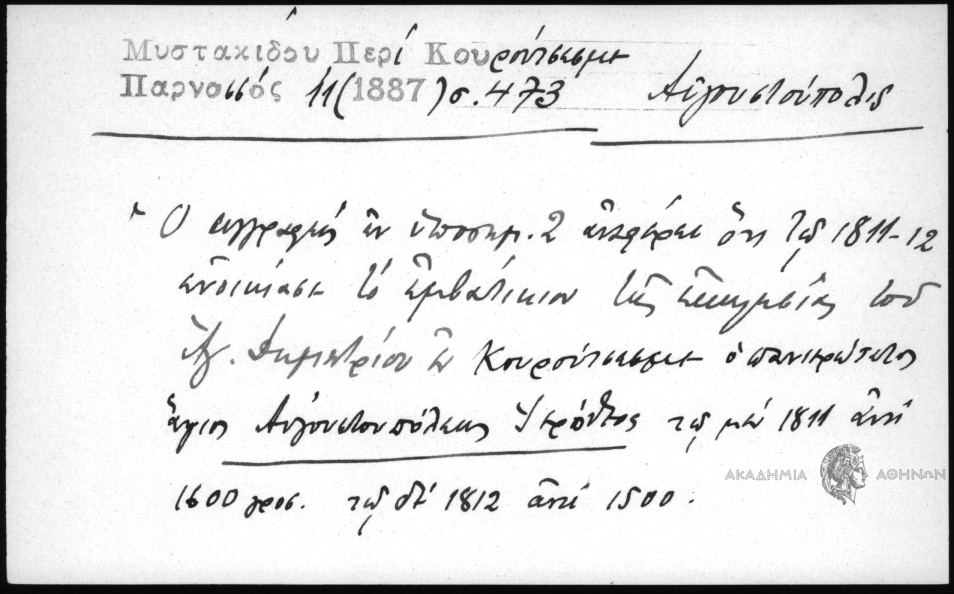 Μυστακίδου Περί Κουρούτσεσμε
Παρνασσός 11 (1887) σ. 473 Αὐγουστούπολις
Ὁ συγγραφεύς ἐν ὑποσημ. 2 ἀναφέρει ὅτι τῷ 1811-12
ἐνοικίασε τό ἐμβατίκιον τῆς ἐκκλησίας τοῦ
Ἁγ. Δημητρίου ἐν Κουρούτσεσμε ὁ πανιερώτατος
ἅγιος Αὐγουστουπόλεως Ἱερόθεος τῷ μέν 1811 ἀντί
1600 γροσ. τῷ δέ 1812 ἀντί 1500.
ΑΚΑΔΗΜΙΑ ΑΘΗΝΩΝ